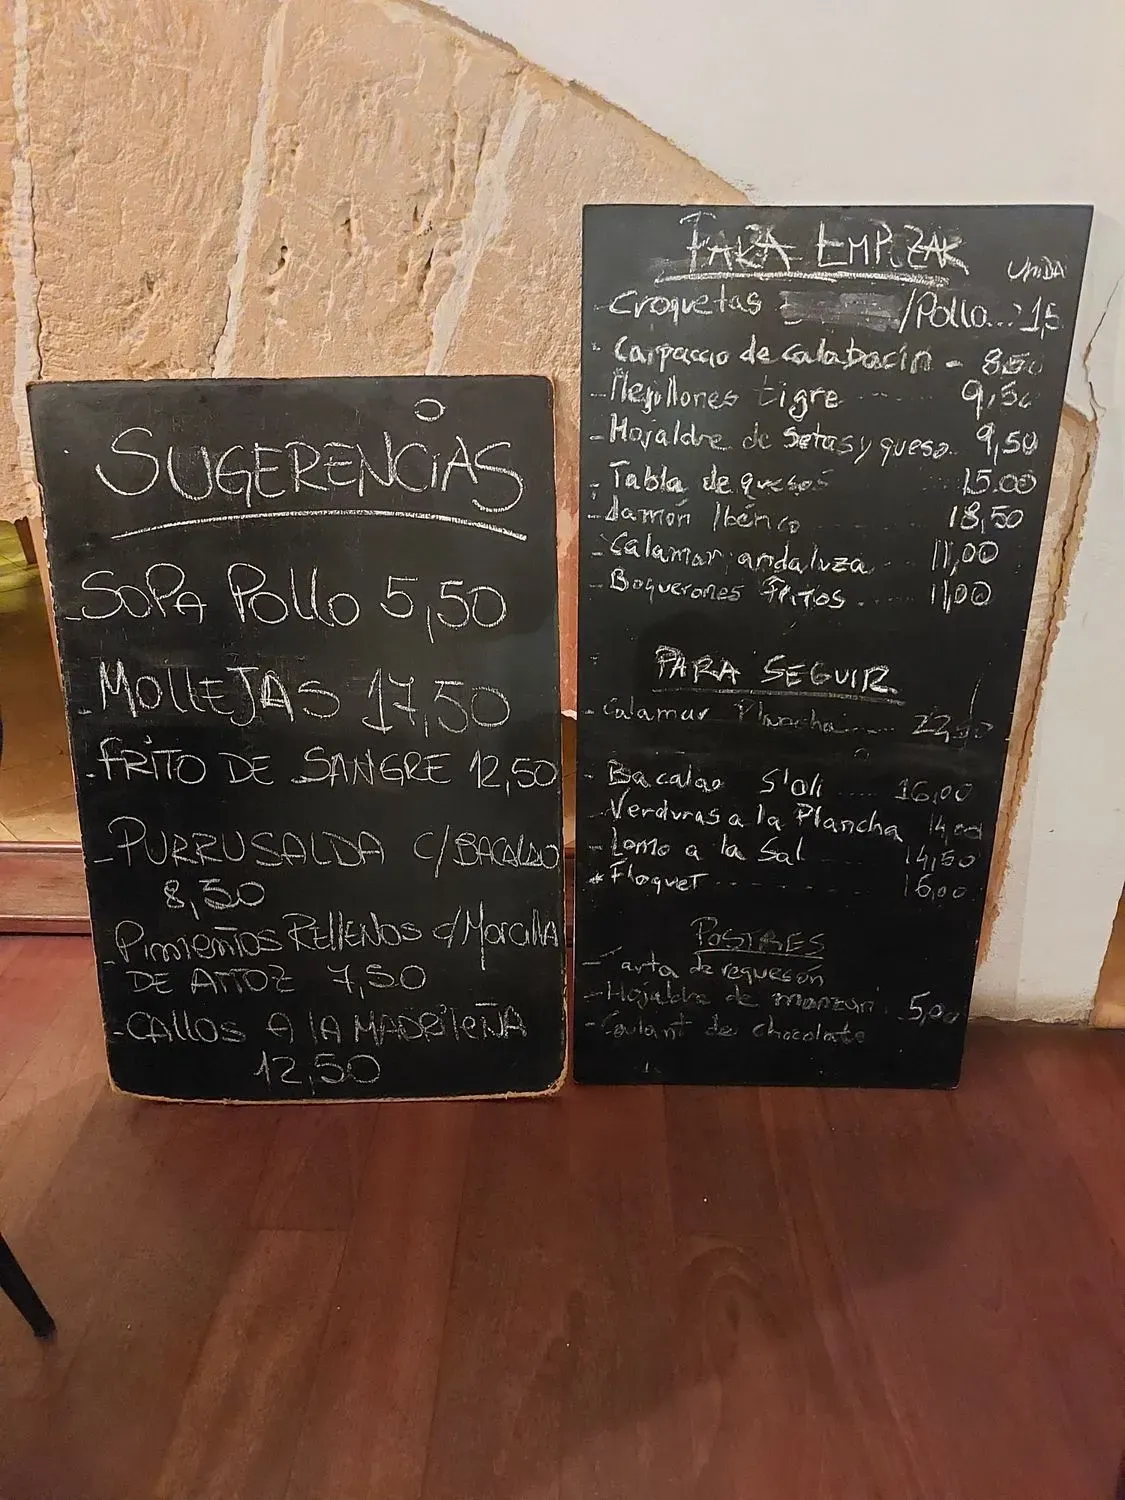 SUGERENCIAS
- SOPA POLLO 5,50
- MOLLEJAS 17,50
- FRITO DE SANGRE 12,50
- PURRUSALDA C/BACALAO
8,50
- PIMIENTOS RELLENOS C/MORCILLA
DE ARROZ 7,50
- CALLOS A LA MADRILEÑA
12,50
PARA EMPEZAR
UNIDA
- Croquetas /Pollo...
- Carpaccio de calabacin - 8,50
- Mejillones tigre 9,50
- Hojaldre de setas y queso. 9,50
- Tabla de quesos 15.00
- Jamón Ibérico 18,50
- Calamar andaluza 11,00
- Boquerones FRITOS 11,00
PARA SEGUIR
- Calamar Plancha
- Bacalao S'oli 16,00
- Verduras a la Plancha 14,00
- Lomo a la Sal 14,50
* Floquet 16,00
POSTRES
- Tarta de requesón
- Hojaldre de manzana 5,00
- Coulant de chocolate